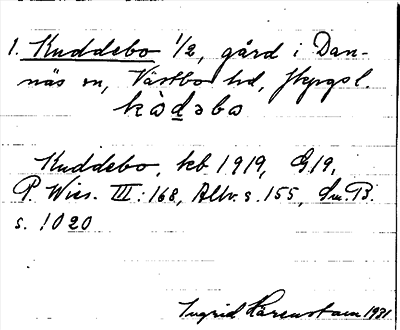 1. Kuddebo 1/2, gård i Dan-
näs sn, Västbo hd, Jkpgs l.
kòdəbo
Kuddebo, kb 1919, G19,
P. Wies. III: 168, Allv. s. 155, Sm. B.
s. 1020
Ingrid Härenstam 1931